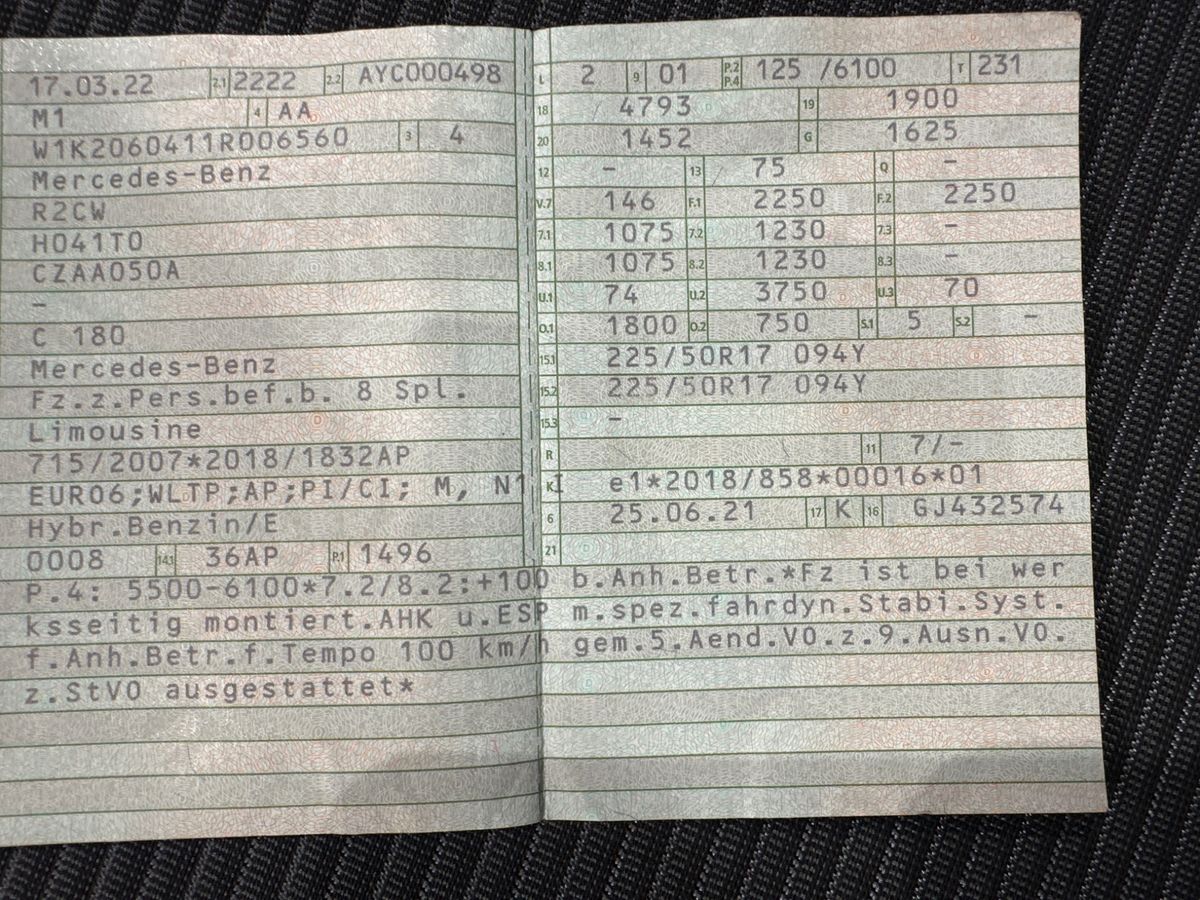 17.03.22 2.1 2222 2.2 AYC000498
M1 4 AA
W1K2060411R006560 3 4
Mercedes-Benz
R2CW
H041T0
CZAA050A
-
C 180
Mercedes-Benz
Fz.z.Pers.bef.b. 8 Spl.
Limousine
715/2007*2018/1832AP
EURO6;WLTP;AP;PI/CI; M, N1 I
Hybr.Benzin/E
0008 14.1 36AP P.1 1496
L 2 9 01 P.2 P.4 125 /6100 T 231
18 4793 19 1900
20 1452 G 1625
12 - 13 75 Q -
V.7 146 F.1 2250 F.2 2250
7.1 1075 7.2 1230 7.3 -
8.1 1075 8.2 1230 8.3 -
U.1 74 U.2 3750 U.3 70
O.1 1800 O.2 750 S.1 5 S.2 -
15.1 225/50R17 094Y
15.2 225/50R17 094Y
15.3 -
R 11 7/-
K e1*2018/858*00016*01
6 25.06.21 17 K 16 GJ432574
21
P.4: 5500-6100*7.2/8.2:+100 b.Anh.Betr.*Fz ist bei wer
ksseitig montiert.AHK u.ESP m.spez.fahrdyn.Stabi.Syst.
f.Anh.Betr.f.Tempo 100 km/h gem.5.Aend.VO.z.9.Ausn.VO.
z.StVO ausgestattet*